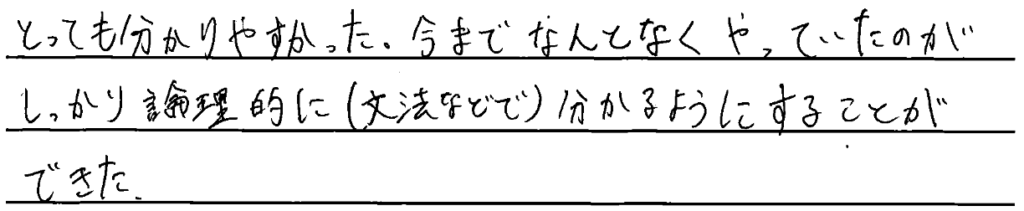 とっても分かりやすかった。今までなんとなくやっていたのが
しっかり論理的に(文法などで)分かるようにすることが
できた.